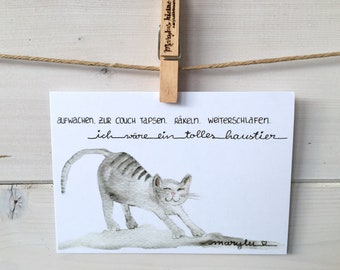 aufwachen. zur couch tapsen. räkeln. weiterschlafen.
ich wäre ein tolles haustier
marylu